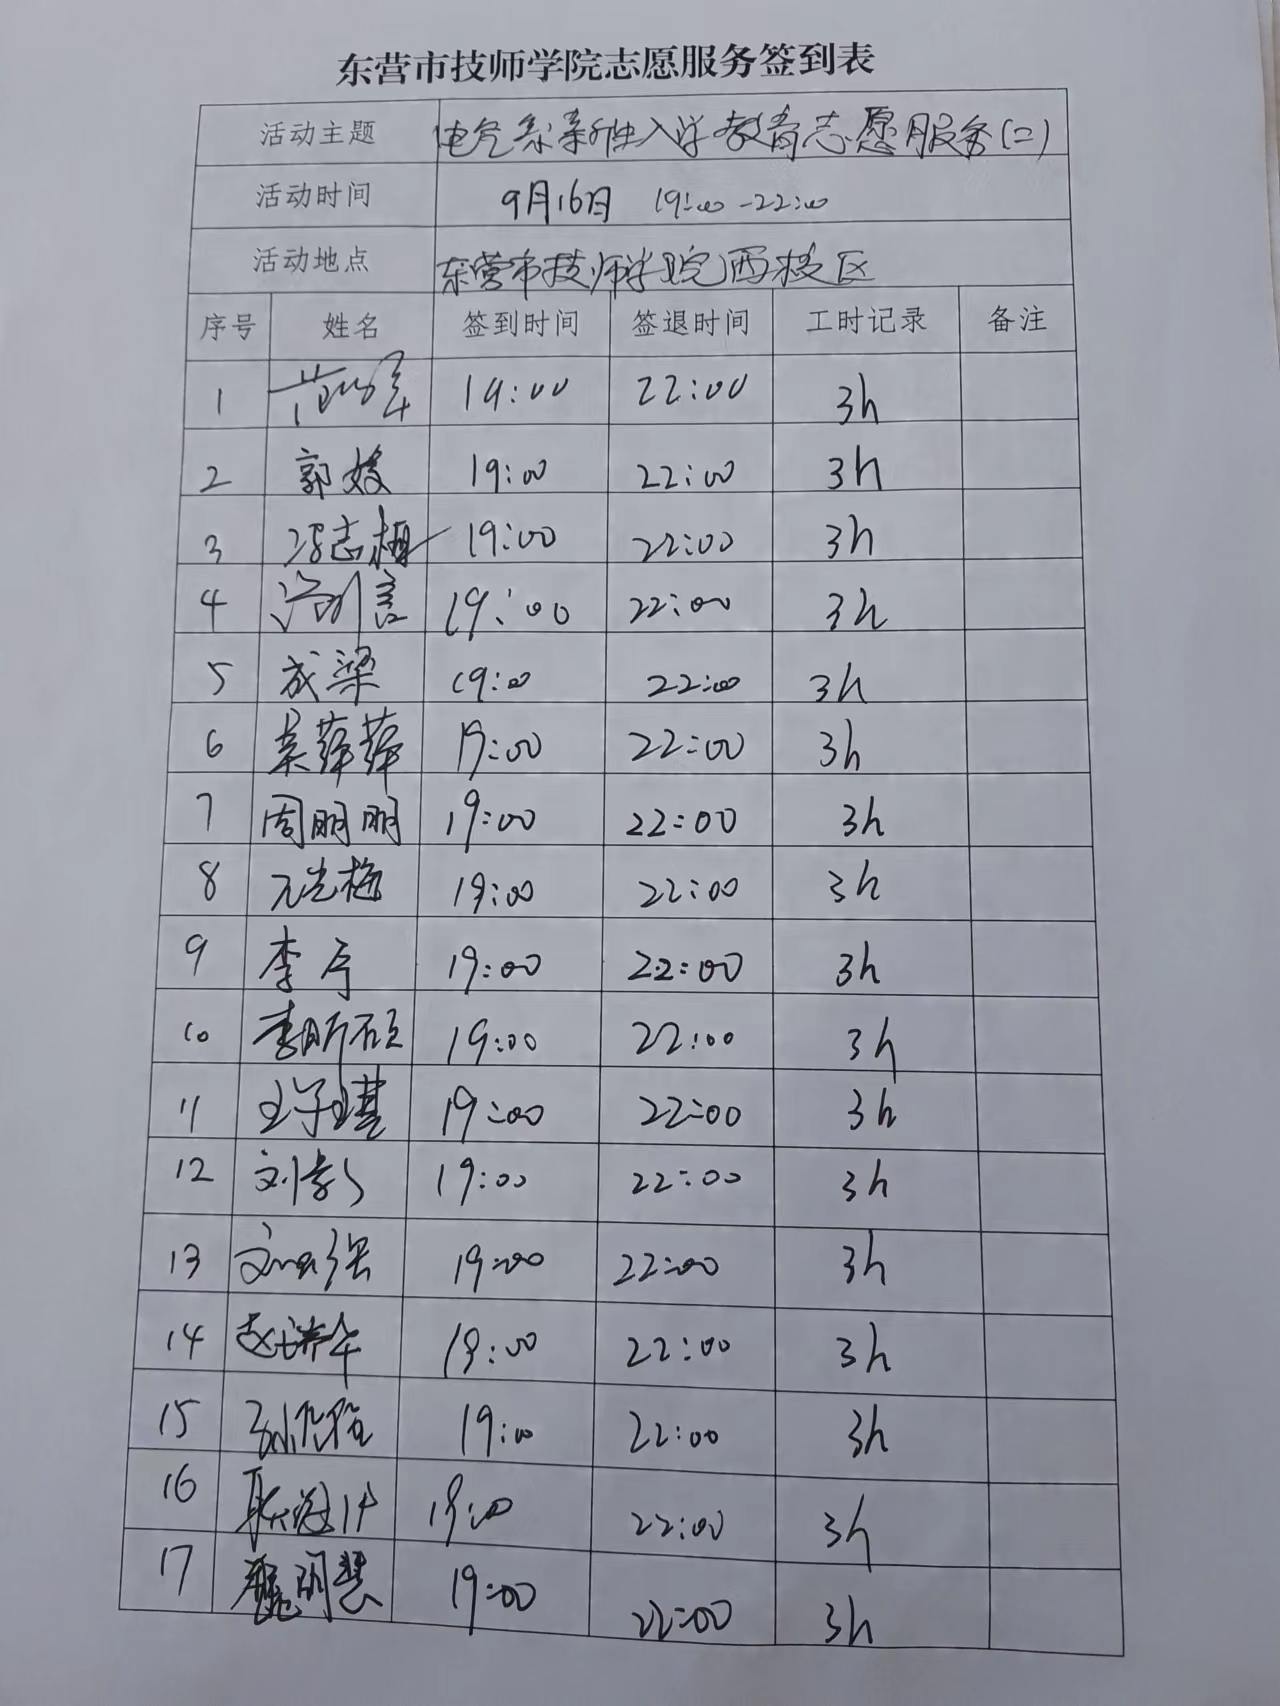 东营市技师学院志愿服务签到表
活动主题 电气系新生入学教育志愿服务(二)
活动时间 9月16日 19:00-22:00
活动地点 东营市技师学院西校区
序号 姓名 签到时间 签退时间 工时记录 备注
1 19:00 22:00 3h
2 郭媛 19:00 22:00 3h
3 冯志梅 19:00 22:00 3h
4 19:00 22:00 3h
5 成梁 19:00 22:00 3h
6 吴萍萍 19:00 22:00 3h
7 周明明 19:00 22:00 3h
8 亓光梅 19:00 22:00 3h
9 李宁 19:00 22:00 3h
10 李昕硕 19:00 22:00 3h
11 王子琪 19:00 22:00 3h
12 刘彰 19:00 22:00 3h
13 19:00 22:00 3h
14 19:00 22:00 3h
15 19:00 22:00 3h
16 19:00 22:00 3h
17 魏明慧 19:00 22:00 3h